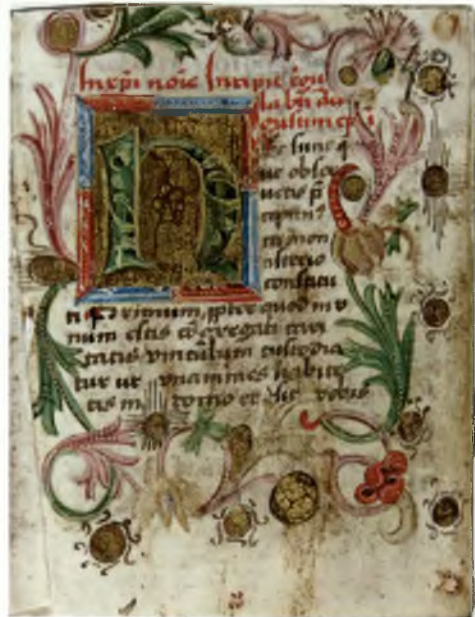 In xpi noīe Incipit
H
ec sunt q
ue obser
uetis p̄
cipim⁹
mon
asterio
constitu
ti Primum, ppter quod in v
num estis cōgregati
tatis vinculum custodia
tur ut vnanimes habite
tis in domo et sit vobis